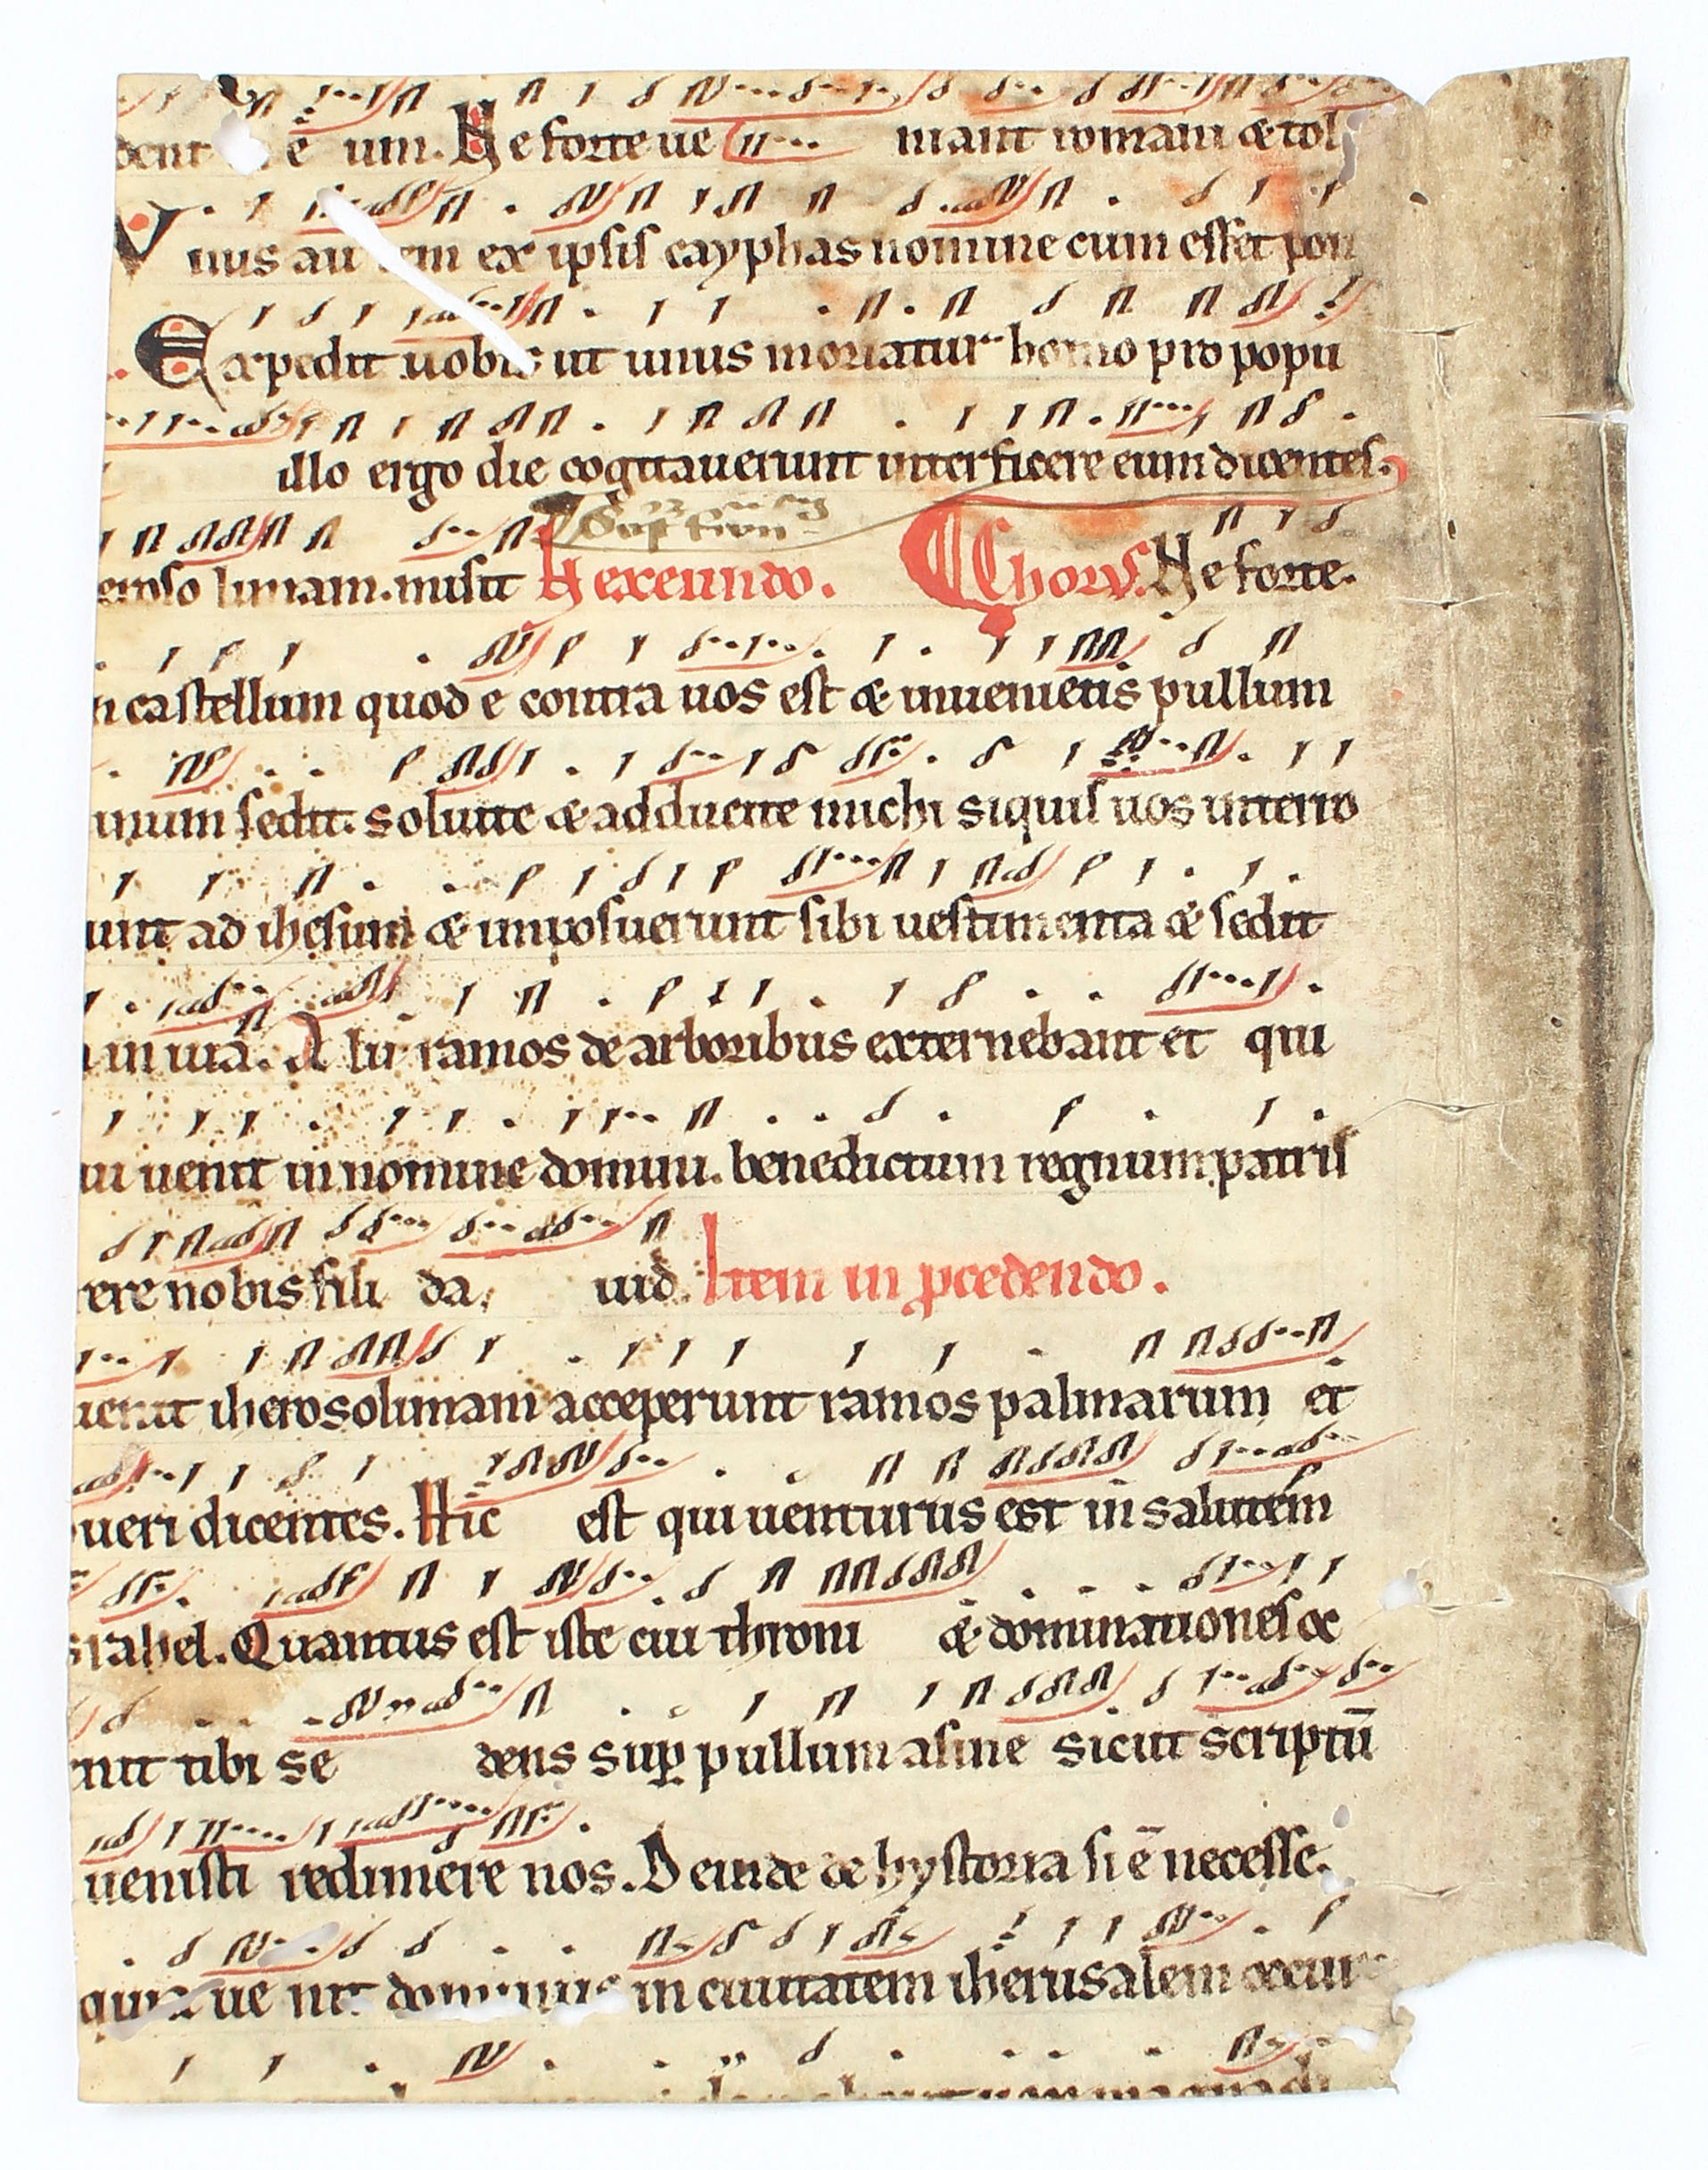 dent e um. Ne forte ue niant romani & tol
Vnus au tem ex ipsis cayphas nomine cum esset pon
Expedit uobis ut unus moriatur homo pro popu
illo ergo die cogitauerunt interficere eum dicentes.
emso liniam. misit In exeundo. Chorus. Ne forte.
n castellum quod e contra uos est & inuenietis pullum
inum sedit. soluite & adducite michi siquis uos interro
unt ad ihesum & imposuerunt sibi uestimenta & sedit
in uia. Alii ramos de arboribus externebant et qui
ui uenit in nomine domini. benedictum regnum patris
ere nobis fili da uid. Item in pcedendo.
uenit iherosolimam acceperunt ramos palmarum et
ueri dicentes. Hic est qui uenturus est in salutem
srahel. Quantus est iste cui throni & dominationes oc
nit tibi se dens sup pullum asine sicut scriptū
uenisti redimere nos. Deinde de hystoria si ē necesse.
ue nit dominus in ciuitatem iherusalem occur